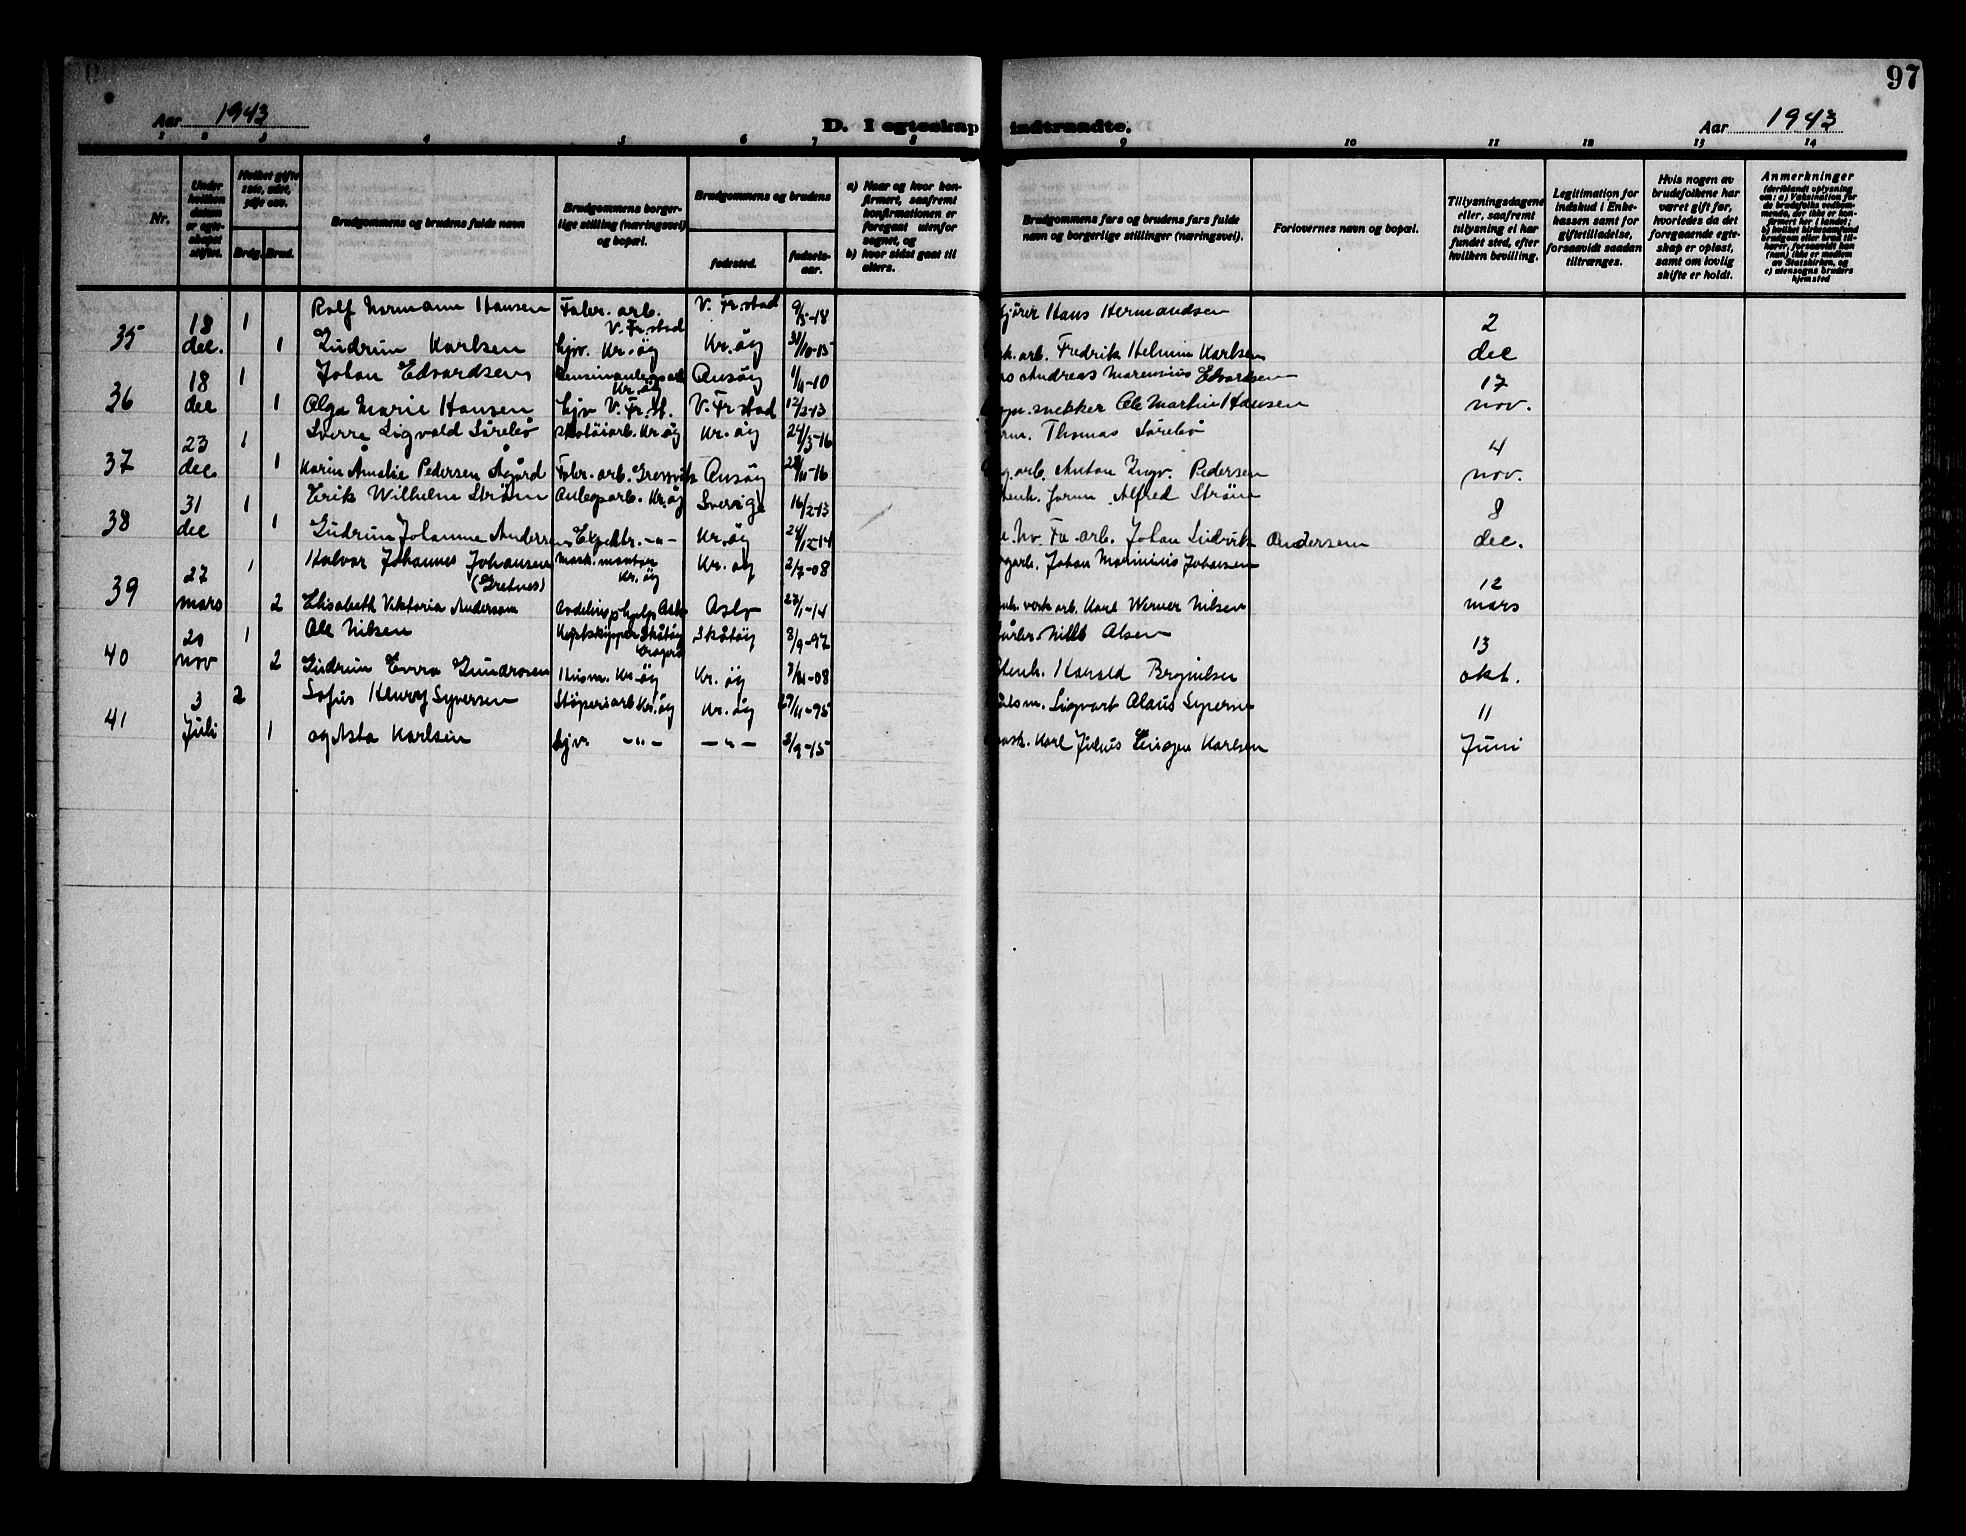 97
Aar 1943 D. I egteskap indtraadte. Aar 1943
1 2 3 4 5 6 7 8 9 10 11 12 13 14
Nr.
Under hvilken datum er egteskapet stiftet.
Hvilket gifte 1ste, 2det, 3dje osv.
Brdg. Brud.
Brudgommens og brudens fulde navn
Brudgommens borgerlige stilling (næringsvei) og bopæl.
Brudgommens og brudens
fødested.
fødselsaar.
a) Naar og hvor konfirmert, saafremt konfirmationen er foregaat utenfor sognet, og
b) hvor sidst gaat til alters.
Brudgommens fars og brudens fars fulde navn og borgerlige stillinger (næringsvei).
Forlovernes navn og bopæl.
Tillysningsdagene eller, saafremt tillysning ei har fundet sted, efter hvilken bevilling.
Legitimation for indskud i Enkekassen samt for giftetilladelse, forsaavidt saadan tiltrænges.
Hvis nogen av brudefolkene har været gift før, hvorledes da det foregaaende egteskap er opløst, samt om lovlig skifte er holdt.
Anmerkninger
(deriblandt oplysning om: a) Vaksination for de brudefolks vedkommende, der ikke er konfirmert her i landet; b) hvilket kirkesamfund brudgom eller brud tilhører, forsaavidt han (hun) ikke er medlem av Statskirken, og c) utensogns bruders hjemsted
35 18 dec. 1 Rolf Normann Hansen Fabr. arb. V. Fr.stad V. Fr.stad 9/5-18 Hans Hermandsen 2 dec
1 Gudrun Karlsen hjv. Kr.øy Kr.øy 31/10-15 arb. Fredrik Helmin Karlsen
36 18 dec 1 Johan Edvardsen Kr.øy Onsøy 1/4-10 Andreas Marensius Edvardsen 17 nov.
1 Olga Marie Hansen hjv V. Fr.st. V. Fr.stad 12/2-13 snekker Ole Martin Hansen
37 23 dec 1 Sverre Sigvald Sørebø skotøiarb. Kr.øy Kr.øy 24/3-16 Thomas Sørebø 4 nov.
1 Karin Amalie Pedersen Ågård Fabr. arb. Gressvik Onsøy 28/11-16 arb. Anton Ingv. Pedersen
38 31 dec 1 Erik Wilhelm Strøm Anlegsarb. Kr.øy Sverige 16/2-13 form Alfred Strøm 8 dec.
1 Gudrun Johanne Andersen Expedtr. -"- Kr.øy 24/12-14 Fa. arb. Johan Ludvik Andersen
39 27 mars 1 Halvor Johannes Johansen (Gretnes) Mask. montør Kr.øy Kr. øy 2/7-08 Johan Marinius Johansen 12 mars
2 Elisabeth Viktoria Andersson Avdelings Oslo Oslo 23/1-14 verk arb. Karl Werner Nilsen
40 20 nov 1 Ole Nilsen Kystskipper Skåtøy Skåtøy 8/9-97 Nills Olsen 13 okt.
2 Gudrun Evva Gundrosen Husm. Kr.øy Kr. øy 3/11-08 Harald Brynilsen
41 3 Juli 2 Sofus Henry Syversen Støperiarb Kr.øy Kr. øy 27/11-95 Sigvart Olaus Syvers 11 Juni
1 og Asta Karlsen hjv. -"- -"- 3/9-15 Karl Julius Eugen Karlsen